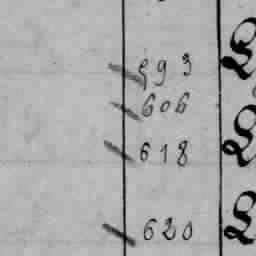 593
606
618
620